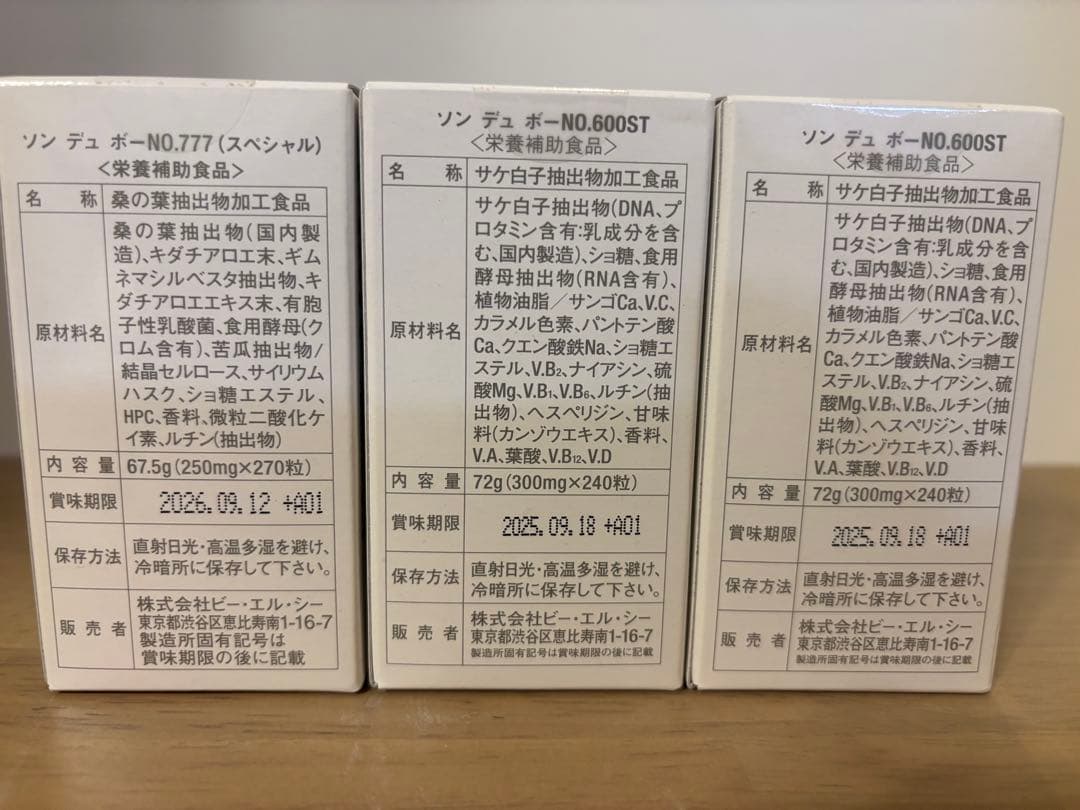 ソン デュ ボーNO.777(スペシャル)
<栄養補助食品>
名 称 桑の葉抽出物加工食品
原材料名
桑の葉抽出物(国内製
造)、キダチアロエ末、ギム
ネマシルベスタ抽出物、キ
ダチアロエエキス末、有胞
子性乳酸菌、食用酵母(ク
ロム含有)、苦瓜抽出物/
結晶セルロース、サイリウム
ハスク、ショ糖エステル、
HPC、香料、微粒二酸化ケ
イ素、ルチン(抽出物)
内容量 67.5g(250mg×270粒)
賞味期限 2026.09.12 +A01
保存方法
直射日光・高温多湿を避け、
冷暗所に保存して下さい。
販売者
株式会社ビー・エル・シー
東京都渋谷区恵比寿南1-16-7
製造所固有記号は
賞味期限の後に記載
ソン デュ ボーNO.600ST
<栄養補助食品>
名 称 サケ白子抽出物加工食品
原材料名
サケ白子抽出物(DNA、プ
ロタミン含有:乳成分を含
む、国内製造)、ショ糖、食用
酵母抽出物(RNA含有)、
植物油脂/サンゴCa、V.C、
カラメル色素、パントテン酸
Ca、クエン酸鉄Na、ショ糖エ
ステル、V.B₂、ナイアシン、硫
酸Mg、V.B₁、V.B₆、ルチン(抽
出物)、ヘスペリジン、甘味
料(カンゾウエキス)、香料、
V.A、葉酸、V.B₁₂、V.D
内容量 72g(300mg×240粒)
賞味期限 2025.09.18 +A01
保存方法
直射日光・高温多湿を避け、
冷暗所に保存して下さい。
販売者
株式会社ビー・エル・シー
東京都渋谷区恵比寿南1-16-7
製造所固有記号は賞味期限の後に記載
ソン デュ ボーNO.600ST
<栄養補助食品>
名 称 サケ白子抽出物加工食品
原材料名
サケ白子抽出物(DNA、プ
ロタミン含有:乳成分を含
む、国内製造)、ショ糖、食用
酵母抽出物(RNA含有)、
植物油脂/サンゴCa、V.C、
カラメル色素、パントテン酸
Ca、クエン酸鉄Na、ショ糖エ
ステル、V.B₂、ナイアシン、硫
酸Mg、V.B₁、V.B₆、ルチン(抽
出物)、ヘスペリジン、甘味
料(カンゾウエキス)、香料、
V.A、葉酸、V.B₁₂、V.D
内容量 72g(300mg×240粒)
賞味期限 2025.09.18 +A01
保存方法
直射日光・高温多湿を避け、
冷暗所に保存して下さい。
販売者
株式会社ビー・エル・シー
東京都渋谷区恵比寿南1-16-7
製造所固有記号は賞味期限の後に記載